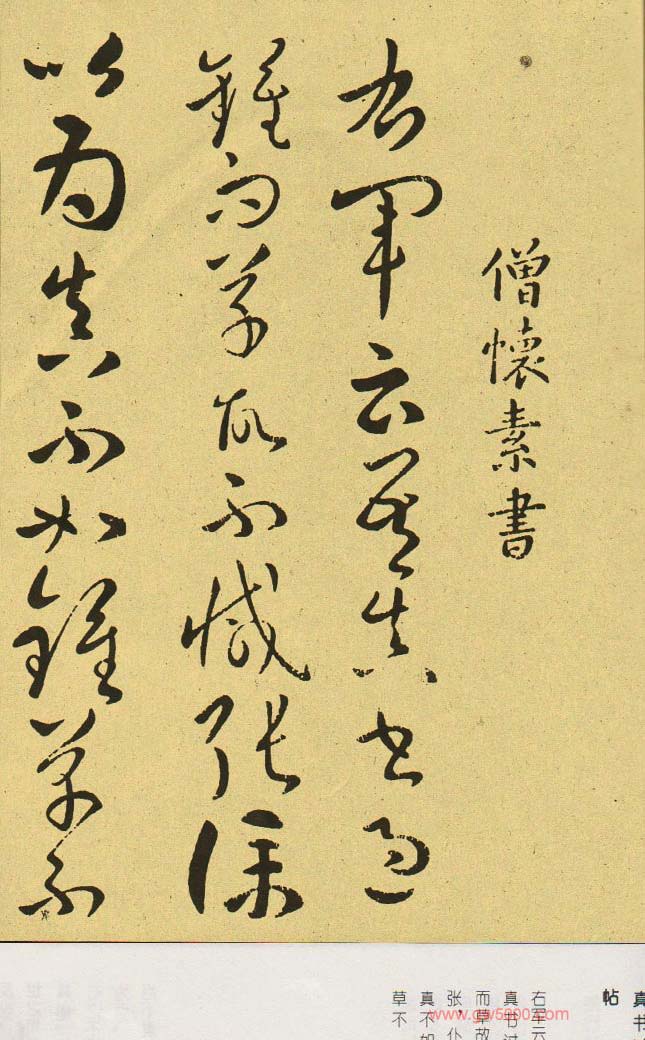 僧懷素書
右軍云吾真書過
鍾而草故不減張僕
以為真不如鍾草不
真书
帖
右军云
真书过
而草故
张，仆
真不如
草不